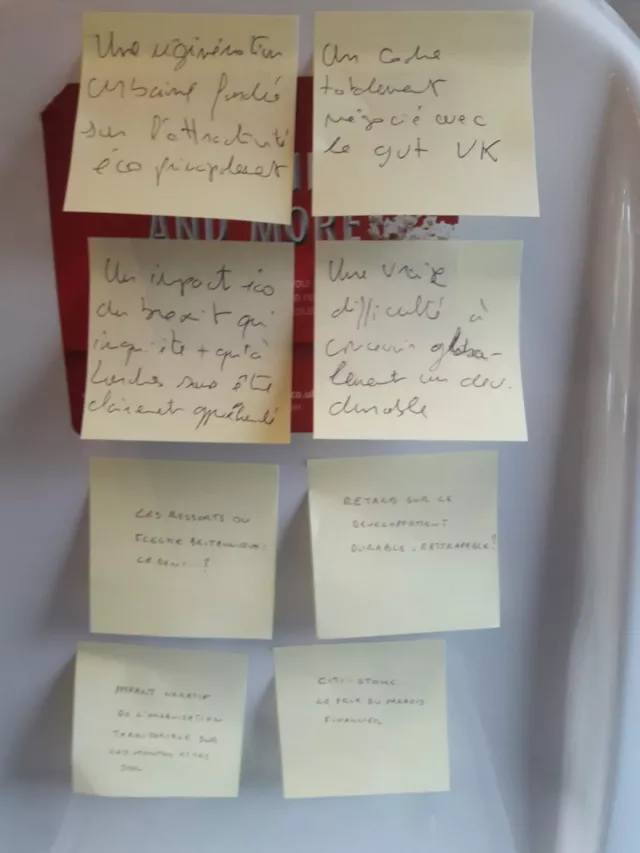 Une régénération
urbaine fondée
sur l'attractivité
éco principalement
Un cadre
totalement
négocié avec
le gvt UK
AND MORE
Un impact éco
du brexit qui
inquiète + qu'à
Londres sans être
clairement appréhendé
Une vraie
difficulté à
concevoir globa-
lement un dev.
durable
LES RESSORTS DU
FLEGME BRITANNIQUE:
LE DÉNI...?
RETARD SUR LE
DEVELOPPEMENT
DURABLE, RATTRAPABLE?
IMPACT NEGATIF
DE L'ORGANISATION
TERRITORIALE SUR
LES
CITI-STATE:
LE PRIX DU PARADIS
FINANCIER